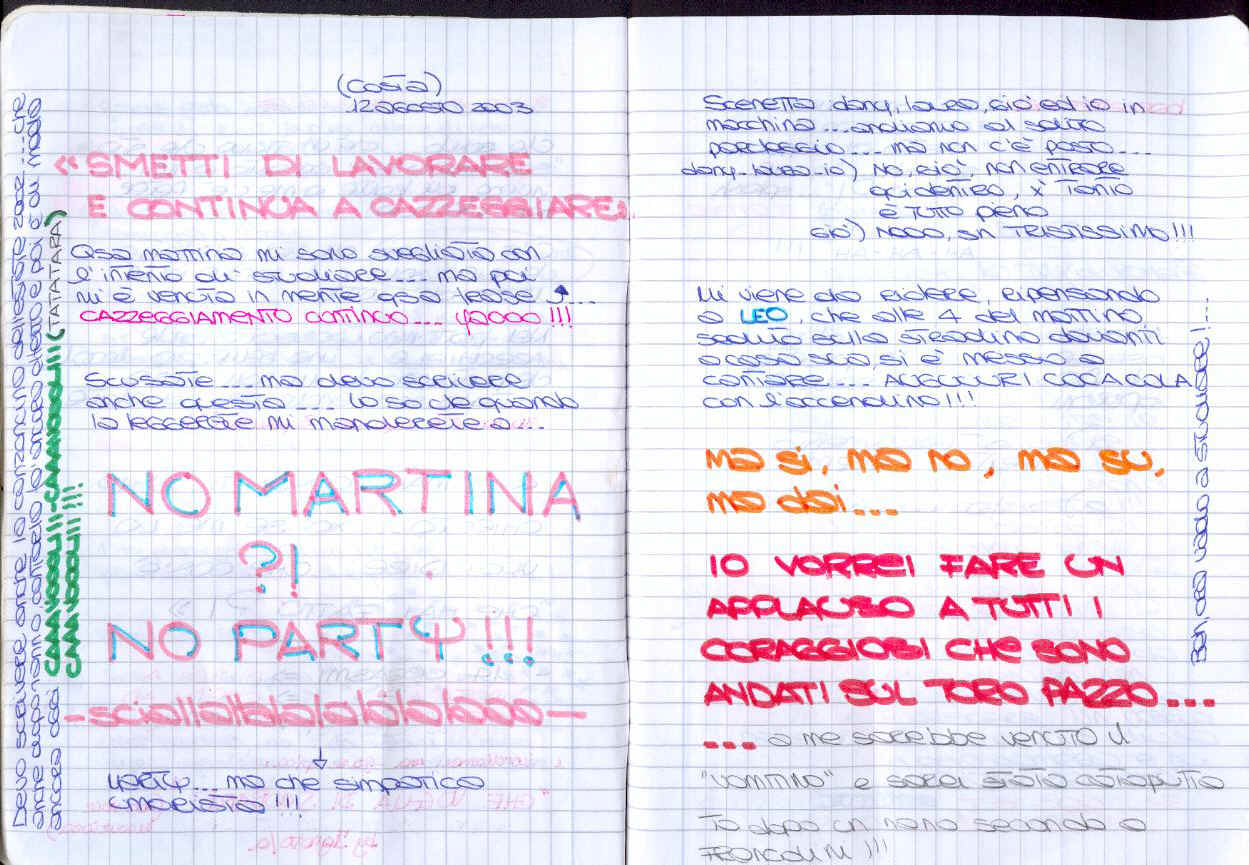 (COSTA)
12 AGOSTO 2003
"SMETTI DI LAVORARE
E CONTINUA A CAZZEGGIARE"
Qsa mattina mi sono svegliata con
l'intento di studiare.... ma poi
mi è venuta in mente qsa frase ....
CAZZEGGIAMENTO CONTINUO....
Scusate .... ma devo scrivere
anche questa .... lo so che quando
la leggerete mi manderete a...
NO MARTINA
?!
NO PARTY!!!
-sciallallalalalalalaooo-
.... ma che simpatica
umorista!!!
Devo scrivere anche la canzoncina dell'estate 2002 .... che
anche oggi
CAAAVOOOLI!!!-CAAAVOOOLI!!! (TATATARA)
CAAAVOOOLI!!!!
Scenetta: dany, laura, giò ed io in
macchina ... andiamo al solito
parcheggio.... ma non c'è posto....
dany-laura-io) No, giò, non entrare
qui dentro, x' tanto
è tutto pieno
giò) NOOO, SN TRISTISSIMO!!!
Mi viene da ridere, ripensando
a LEO, che alle 4 del mattino,
seduto sullo stradino davanti
a casa sua, si è messo a
cantare.... AUGUUURI COCA COLA
con l'accendino!!!
ma si, ma no, ma su,
ma dai...
IO VORREI FARE UN
APPLAUSO A TUTTI I
CORAGGIOSI CHE SONO
ANDATI SUL TORO PAZZO ...
... a me sarebbe venuto il
"VOMITINO" e sarei stata catapulta
ta dopo un nano secondo a
!!!
Boh, ora vado a studiare!...